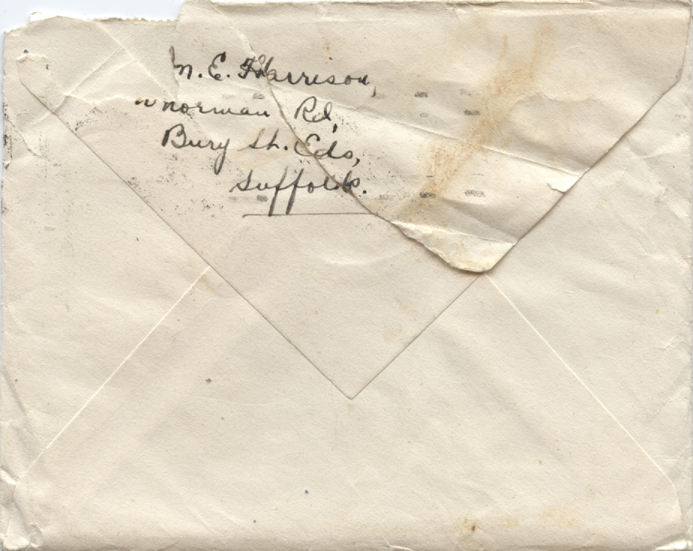 M. E. Harrison,
norman Rd,
Bury St. Eds,
Suffolk.